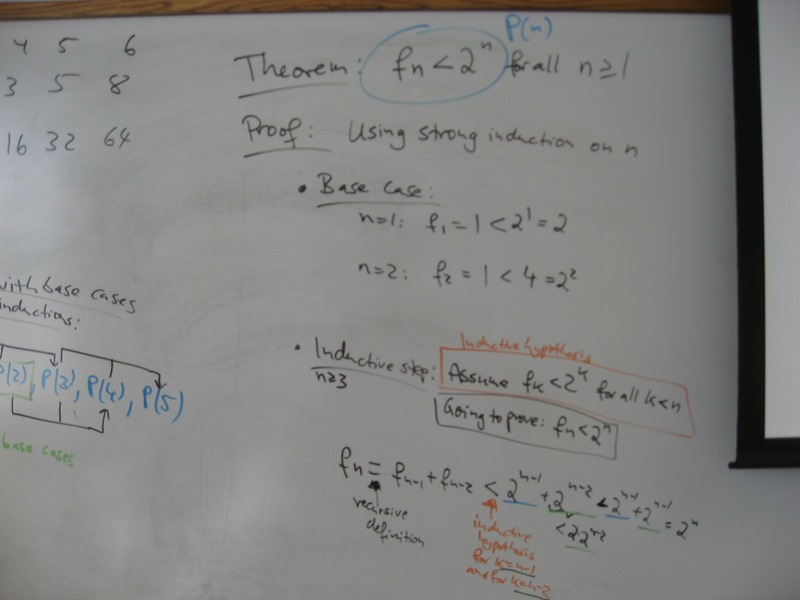 4 5 6
3 5 8
16 32 64
with base cases
inductions:
P(2), P(3), P(4), P(5)
base cases
P(n)
Theorem: fn < 2^n for all n ≥ 1
Proof: Using strong induction on n
• Base case:
n=1: f₁ = 1 < 2^1 = 2
n=2: f₂ = 1 < 4 = 2^2
Inductive hypothesis
• Inductive step: Assume fk < 2^k for all k<n
n≥3
Going to prove: fn < 2^n
fn = fn-1 + fn-2 < 2^n-1 + 2^n-2 < 2^n-1 + 2^n-1 = 2^n
recursive
definition
inductive
hypothesis
for k=n-1
and for k=n-2